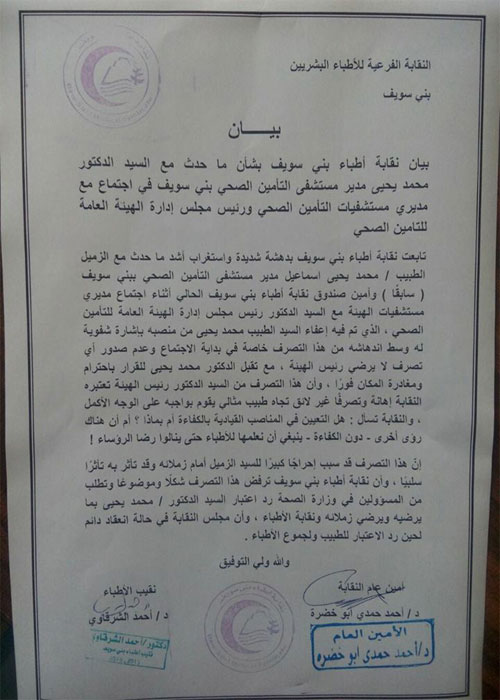 النقابة الفرعية للأطباء البشريين
بني سويف
بيـــــان
بيان نقابة أطباء بني سويف بشأن ما حدث مع السيد الدكتور
محمد يحيى مدير مستشفى التأمين الصحي بني سويف في اجتماع مع
مديري مستشفيات التأمين الصحي ورئيس مجلس إدارة الهيئة العامة
للتامين الصحي
تابعت نقابة أطباء بني سويف بدهشة شديدة واستغراب أشد ما حدث مع الزميل
الطبيب / محمد يحيى اسماعيل مدير مستشفى التأمين الصحي ببني سويف
( سابقًا ) وأمين صندوق نقابة أطباء بني سويف الحالي أثناء اجتماع مديري
مستشفيات الهيئة مع السيد الدكتور رئيس مجلس إدارة الهيئة العامة للتأمين
الصحي ، الذي تم فيه إعفاء السيد الطبيب محمد يحيى من منصبه بإشارة شفوية
له وسط اندهاشه من هذا التصرف خاصة في بداية الاجتماع وعدم صدور أي
تصرف لا يرضي رئيس الهيئة ، مع تقبل الدكتور محمد يحيى للقرار باحترام
ومغادرة المكان فورًا ، وأن هذا التصرف من السيد الدكتور رئيس الهيئة تعتبره
النقابة إهانة وتصرفًا غير لائق تجاه طبيب مثالي يقوم بواجبه على الوجه الأكمل
، والنقابة تسأل : هل التعيين في المناصب القيادية بالكفاءة أم بماذا ؟ أم أن هناك
رؤى أخرى - دون الكفاءة - ينبغي أن نعلمها للأطباء حتى ينالوا رضا الرؤساء !
إنّ هذا التصرف قد سبب إحراجًا كبيرًا للسيد الزميل أمام زملائه وقد تأثر به تأثرًا
سلبيًا ، وأن نقابة أطباء بني سويف ترفض هذا التصرف شكلًا وموضوعًا وتطلب
من المسؤولين في وزارة الصحة رد اعتبار السيد الدكتور / محمد يحيى بما
يرضيه ويرضي زملائه ونقابة الأطباء ، وأن مجلس النقابة في حالة انعقاد دائم
لحين رد الاعتبار للطبيب ولجموع الأطباء .
والله ولي التوفيق
أمين عام النقابة
نقيب الأطباء
د / أحمد حمدي أبو خضرة
د / أحمد الشرقاوي
الأمين العام
د/أحمد حمدى أبو خضره
دكتور/ أحمد الشرقاوى
نقيب أطباء بنى سويف